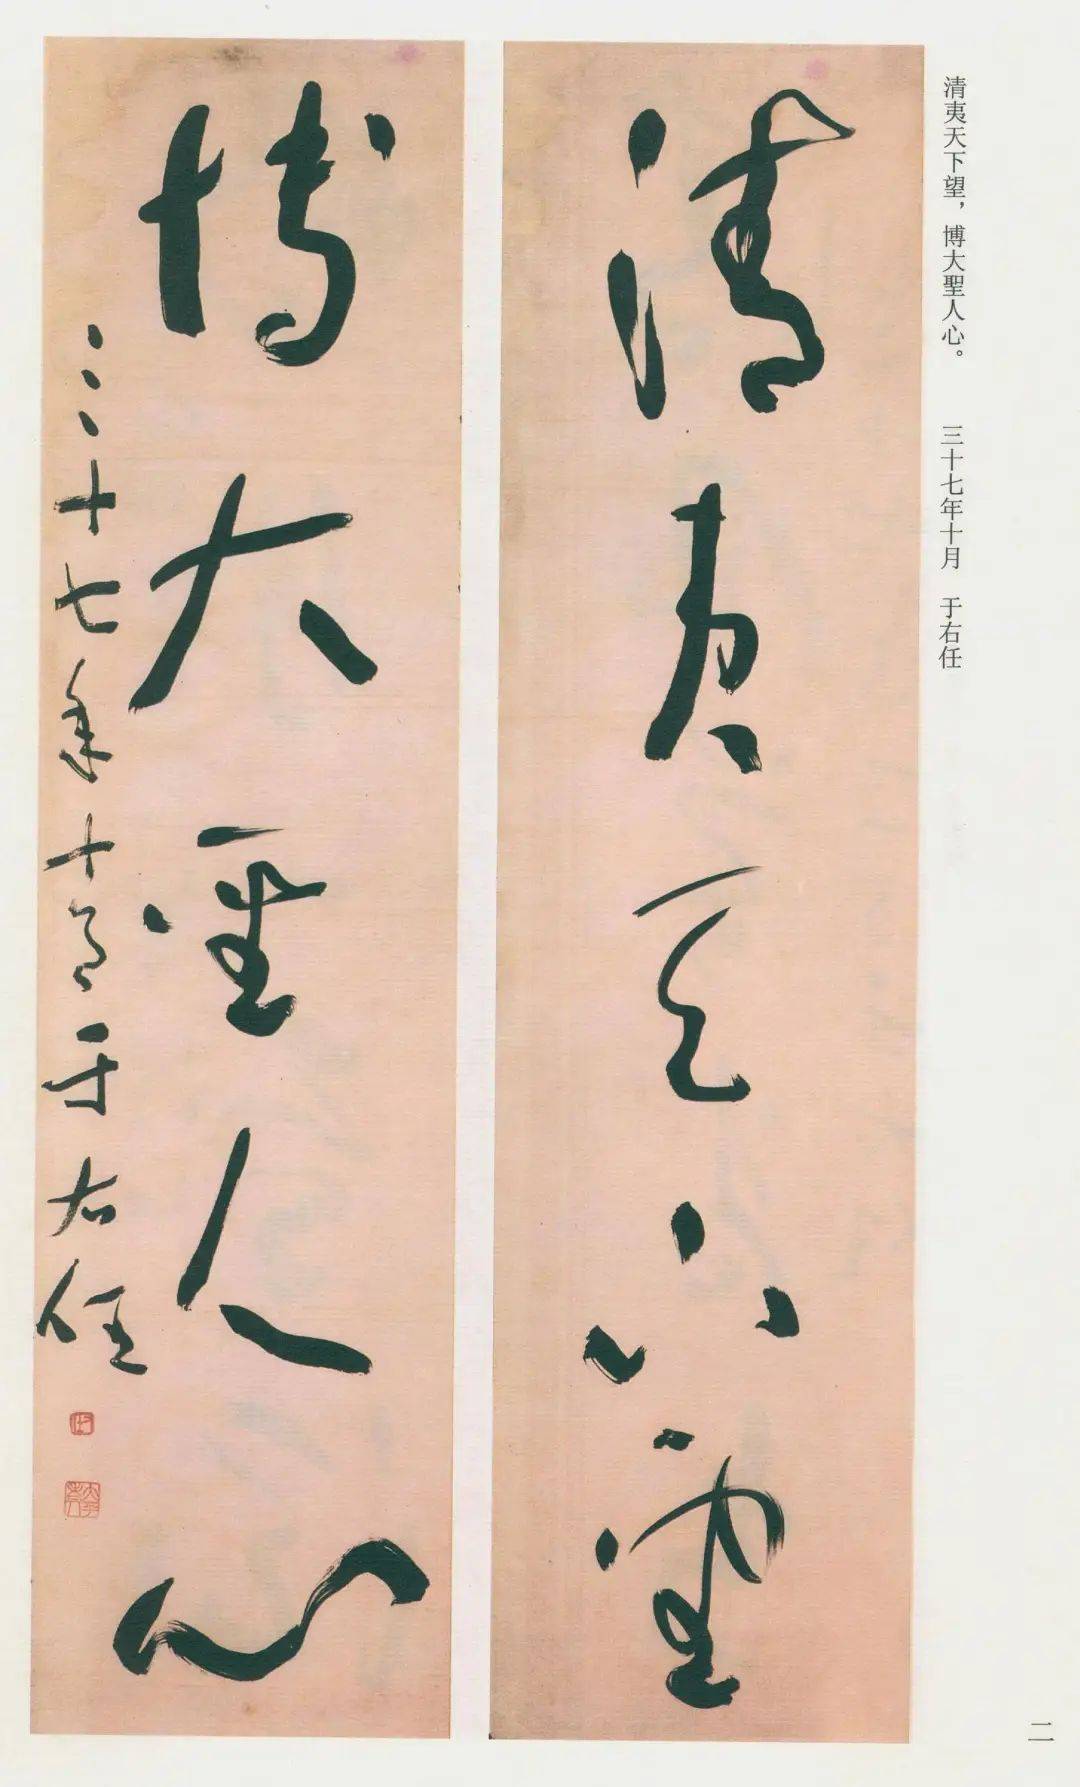 清夷天下望，博大聖人心。 三十七年十月 于右任
清夷天下望
博大聖人心
三十七年十月于右任
二